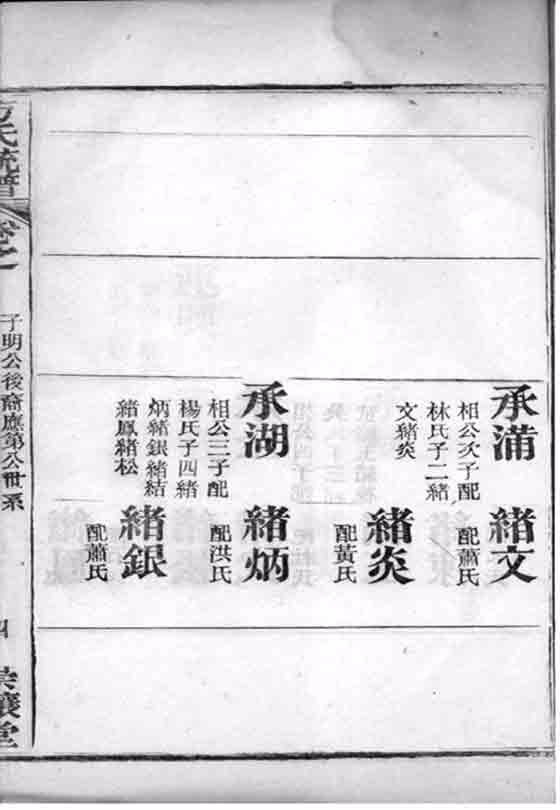 承滿
相公次子配
林氏子二緒
文緒炎
緒文
配蕭氏
緒炎
配黃氏
承湖
相公三子配
楊氏子四緒
炳緒銀緒結
緒鳳緒松
緒炳
配洪氏
緒銀
配蕭氏
方氏統譜
卷之一
子明公後裔應第公世系
四